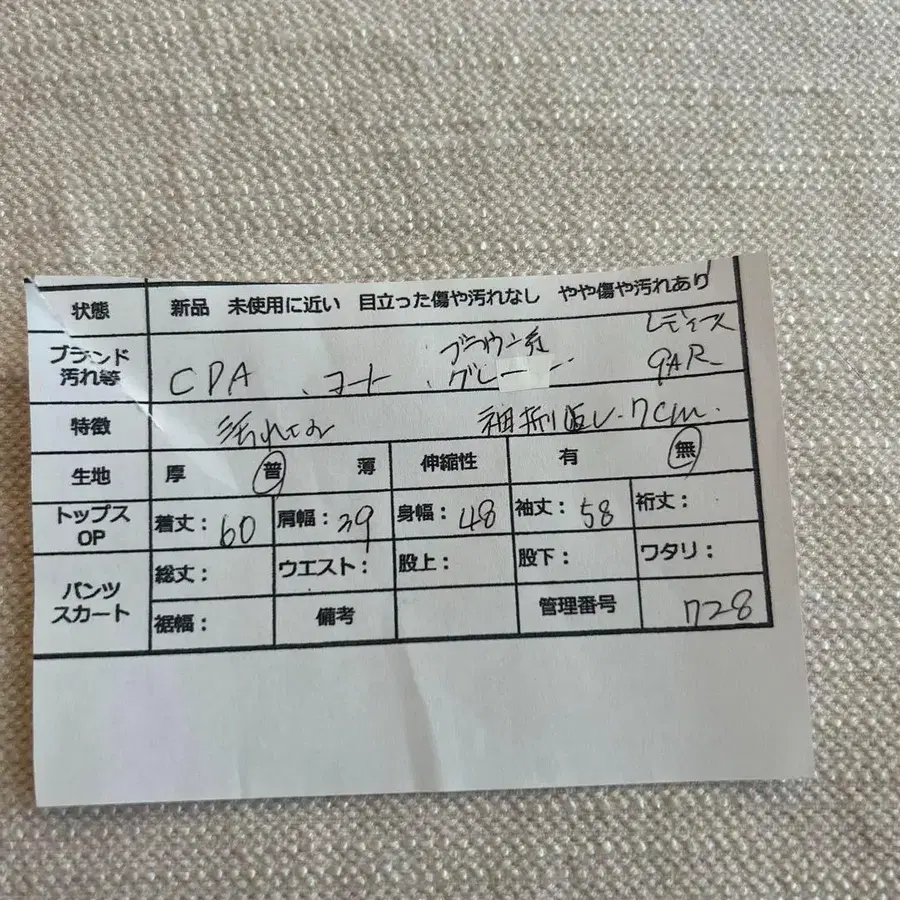 状態 新品 未使用に近い 目立った傷や汚れなし やや傷や汚れあり
ブランド 汚れ等 CPA 、コート、 ブラウン系 グレー レディース 9AR
特徴 汚れなし 袖折り返し.7cm.
生地 厚 普 薄 伸縮性 有 無
トップス OP 着丈: 60 肩幅: 39 身幅: 48 袖丈: 58 裄丈:
パンツ スカート 総丈: ウエスト: 股上: 股下: ワタリ:
裾幅: 備考 管理番号 728